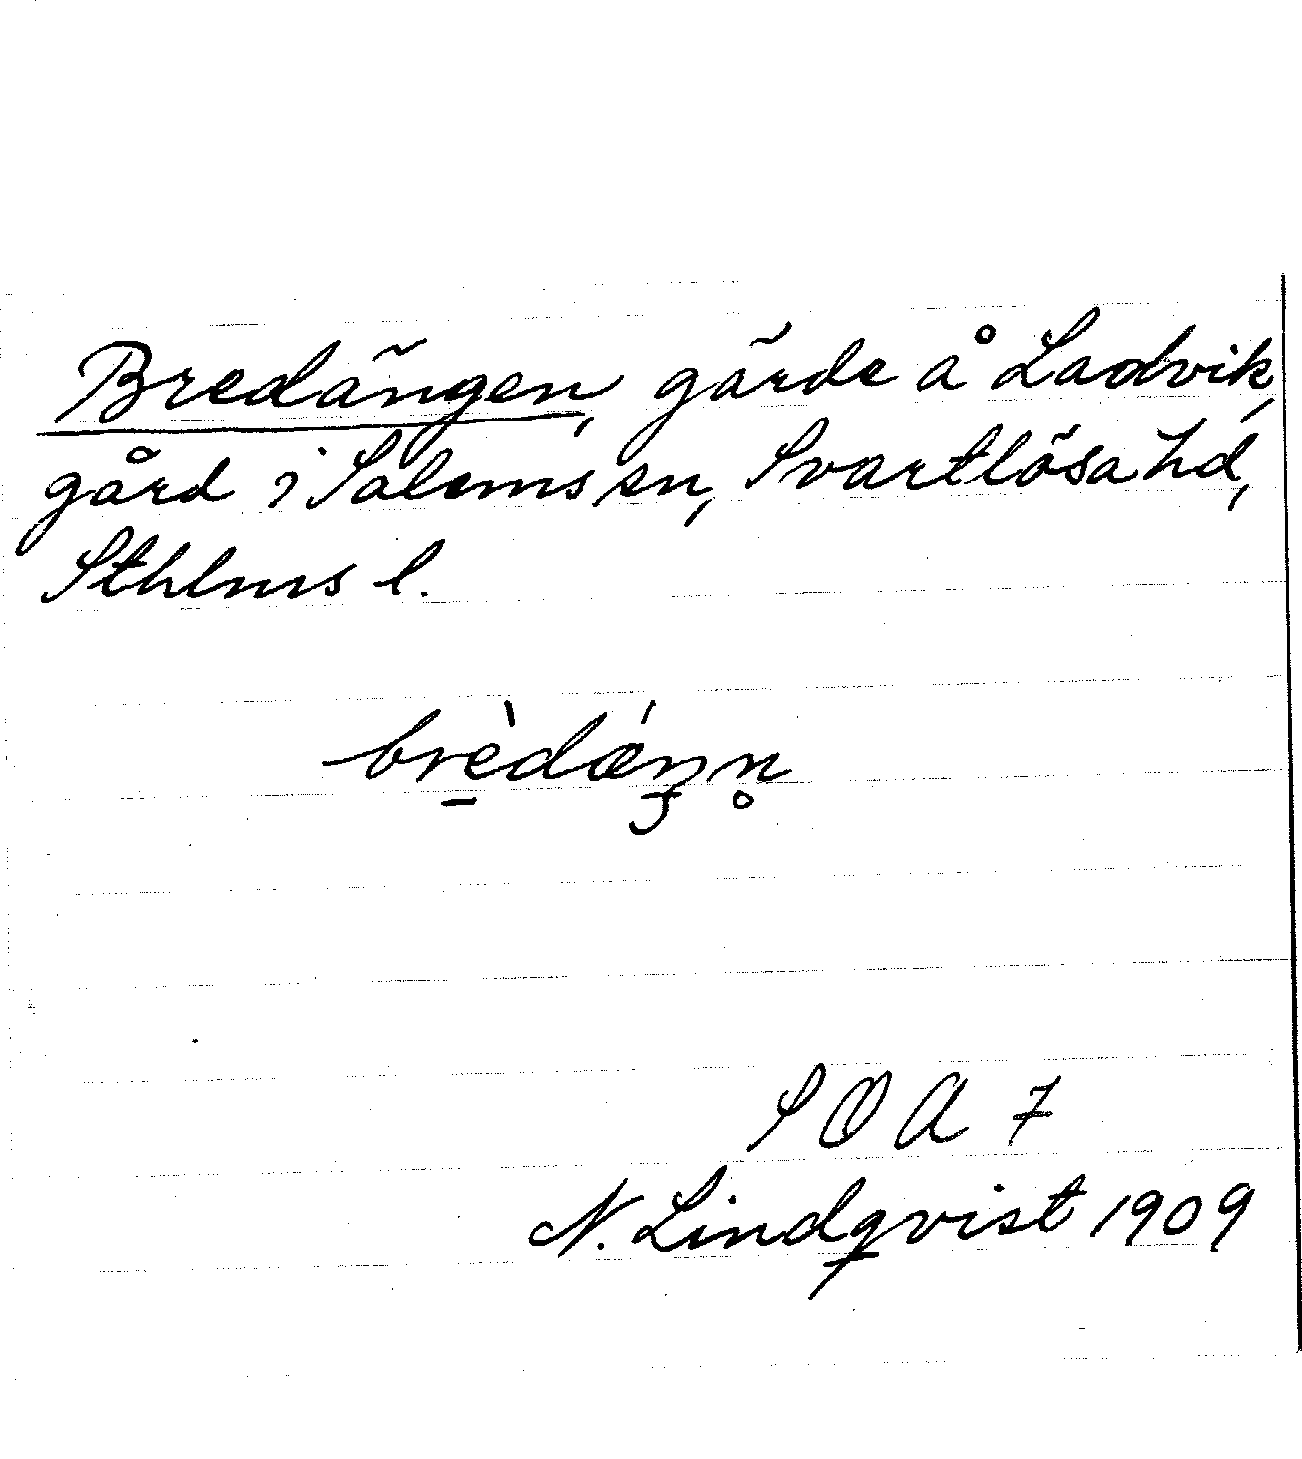 Bredängen, gärde å Ladvik,
gård i Salems sn, Svartlösa hd,
Sthlms l.
brè̠dǽŋn̥
SOA 7
N. Lindqvist 1909